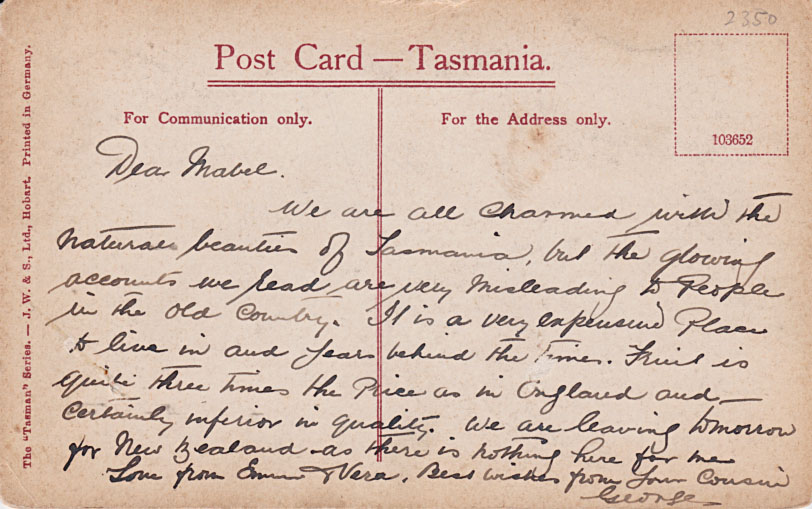 2350
Post Card — Tasmania.
For Communication only.
For the Address only.
103652
The "Tasman" Series. — J. W. & S., Ltd., Hobart. Printed in Germany.
Dear Mabel.
We are all charmed with the
natural beauties of Tasmania, but the glowing
accounts we read are very misleading to People
in the Old Country. It is a very expensive Place
to live in and years behind the times. Fruit is
quite three times the Price as in England and
certainly inferior in quality. We are leaving tomorrow
for New Zealand as there is nothing here for me
Love from Emma & Vera. Best wishes from Your Cousin
George